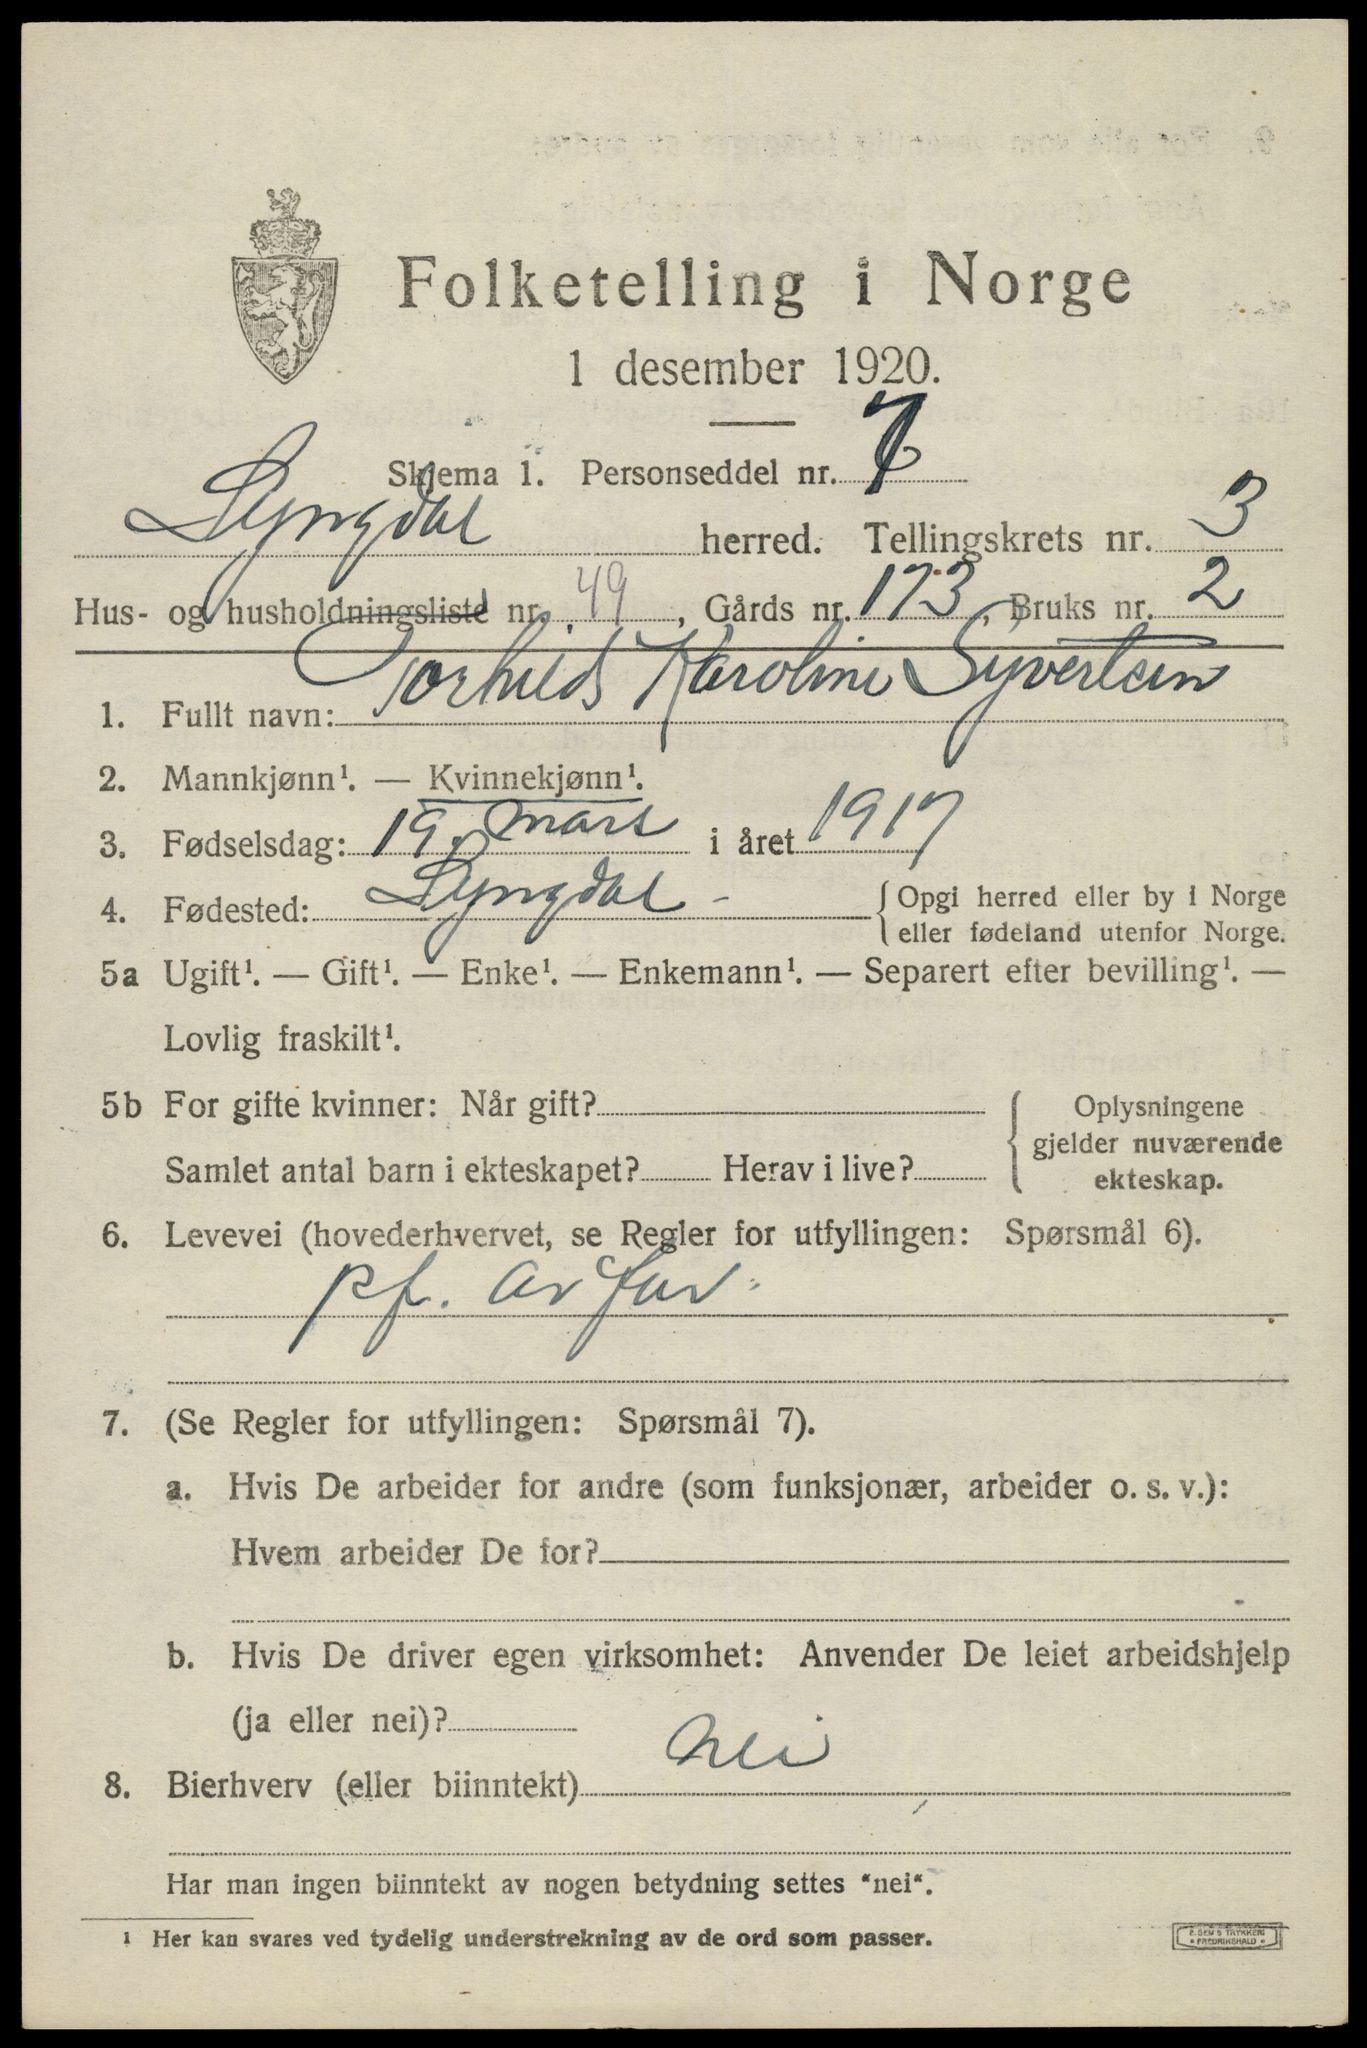 Folketelling i Norge
1 desember 1920.
Skjema 1. Personseddel nr. 7
Lyngdal herred. Tellingskrets nr. 3
Hus- og husholdningsliste nr. 49, Gårds nr. 173, Bruks nr. 2
1. Fullt navn: Torhild Karoline Syvertsen
2. Mannkjønn¹. — Kvinnekjønn¹.
3. Fødselsdag: 19. mars i året 1917
4. Fødested: Lyngdal - {Opgi herred eller by i Norge
eller fødeland utenfor Norge.
5a Ugift¹. — Gift¹. — Enke¹. — Enkemann¹. — Separert efter bevilling¹. —
Lovlig fraskilt¹.
5b For gifte kvinner: Når gift?
Samlet antal barn i ekteskapet? Herav i live?
{ Oplysningene
gjelder nuværende
ekteskap.
6. Levevei (hovederhvervet, se Regler for utfyllingen: Spørsmål 6).
pf. av far.
7. (Se Regler for utfyllingen: Spørsmål 7).
a. Hvis De arbeider for andre (som funksjonær, arbeider o. s. v.):
Hvem arbeider De for?
b. Hvis De driver egen virksomhet: Anvender De leiet arbeidshjelp
(ja eller nei)?
8. Bierhverv (eller biinntekt) Nei
Har man ingen biinntekt av nogen betydning settes "nei".
1 Her kan svares ved tydelig understrekning av de ord som passer.
E. SEM'S TRYKKERI
FREDRIKSHALD